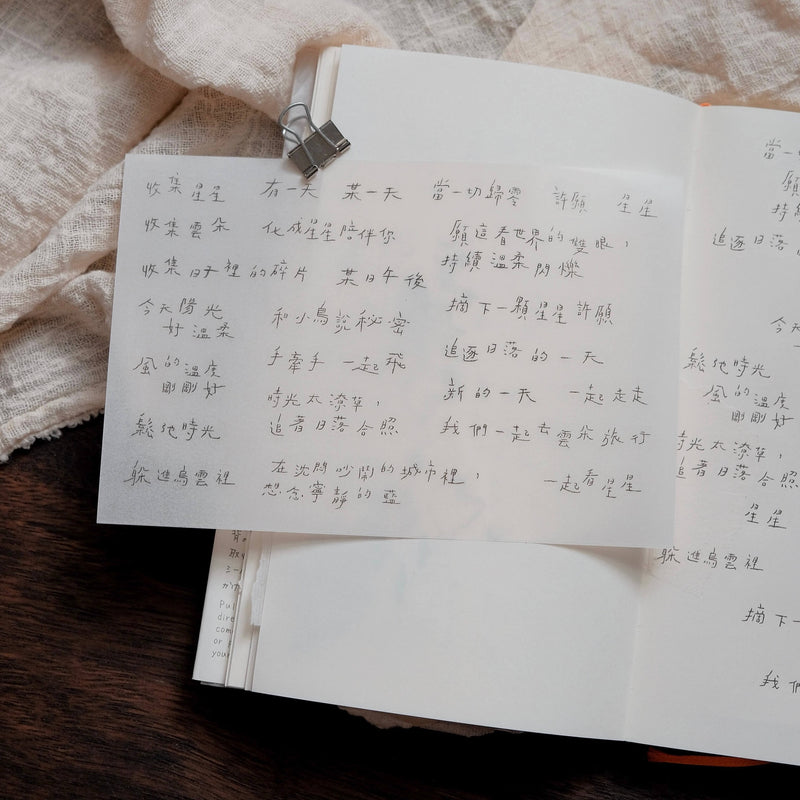 收集星星 有一天 某一天 當一切歸零 許願 星星
收集雲朵 化成星星陪伴你 願這看世界的雙眼，
持續溫柔閃爍
收集日子裡的碎片 某日午後
今天陽光
好溫柔
和小鳥說秘密
摘下一顆星星許願
風的溫度
剛剛好
手牽手 一起飛
追逐日落的一天
時光太潦草，
追著日落合照
新的一天 一起走走
鬆弛時光
我們一起去雲朵旅行
躲進烏雲裡
在沈悶吵鬧的城市裡，
想念寧靜的藍
一起看星星
當一
願
持續
追逐日落
今天
鬆弛時光
風的溫度
剛剛好
時光太潦草，
追著日落合照
星星
躲進烏雲裡
摘下一
我們
Pu
dire
com
or
your